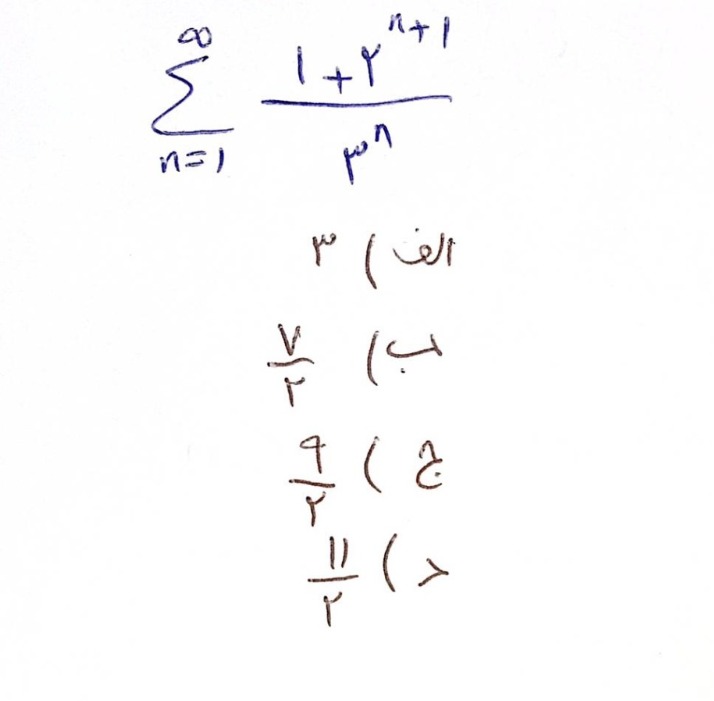 ∞
∑ (n=1) (۱+۲^(n+1))/(۳^n)
الف) ۳
ب) ۷/۲
ج) ۹/۲
د) ۱۱/۲